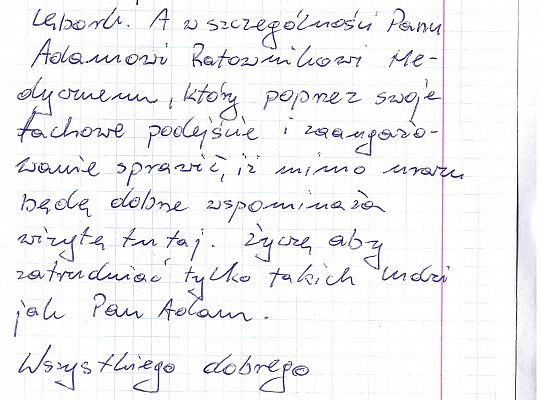 Lębork. A w szczególności Panu
Adamowi Ratownikowi Me-
dycznemu, który poprzez swoje
fachowe podejście i zaangażo-
wanie sprawił, iż mimo urazu
będę dobrze wspominała
wizytę tutaj. Życzę aby
zatrudniać tylko takich ludzi
jak Pan Adam.
Wszystkiego dobrego